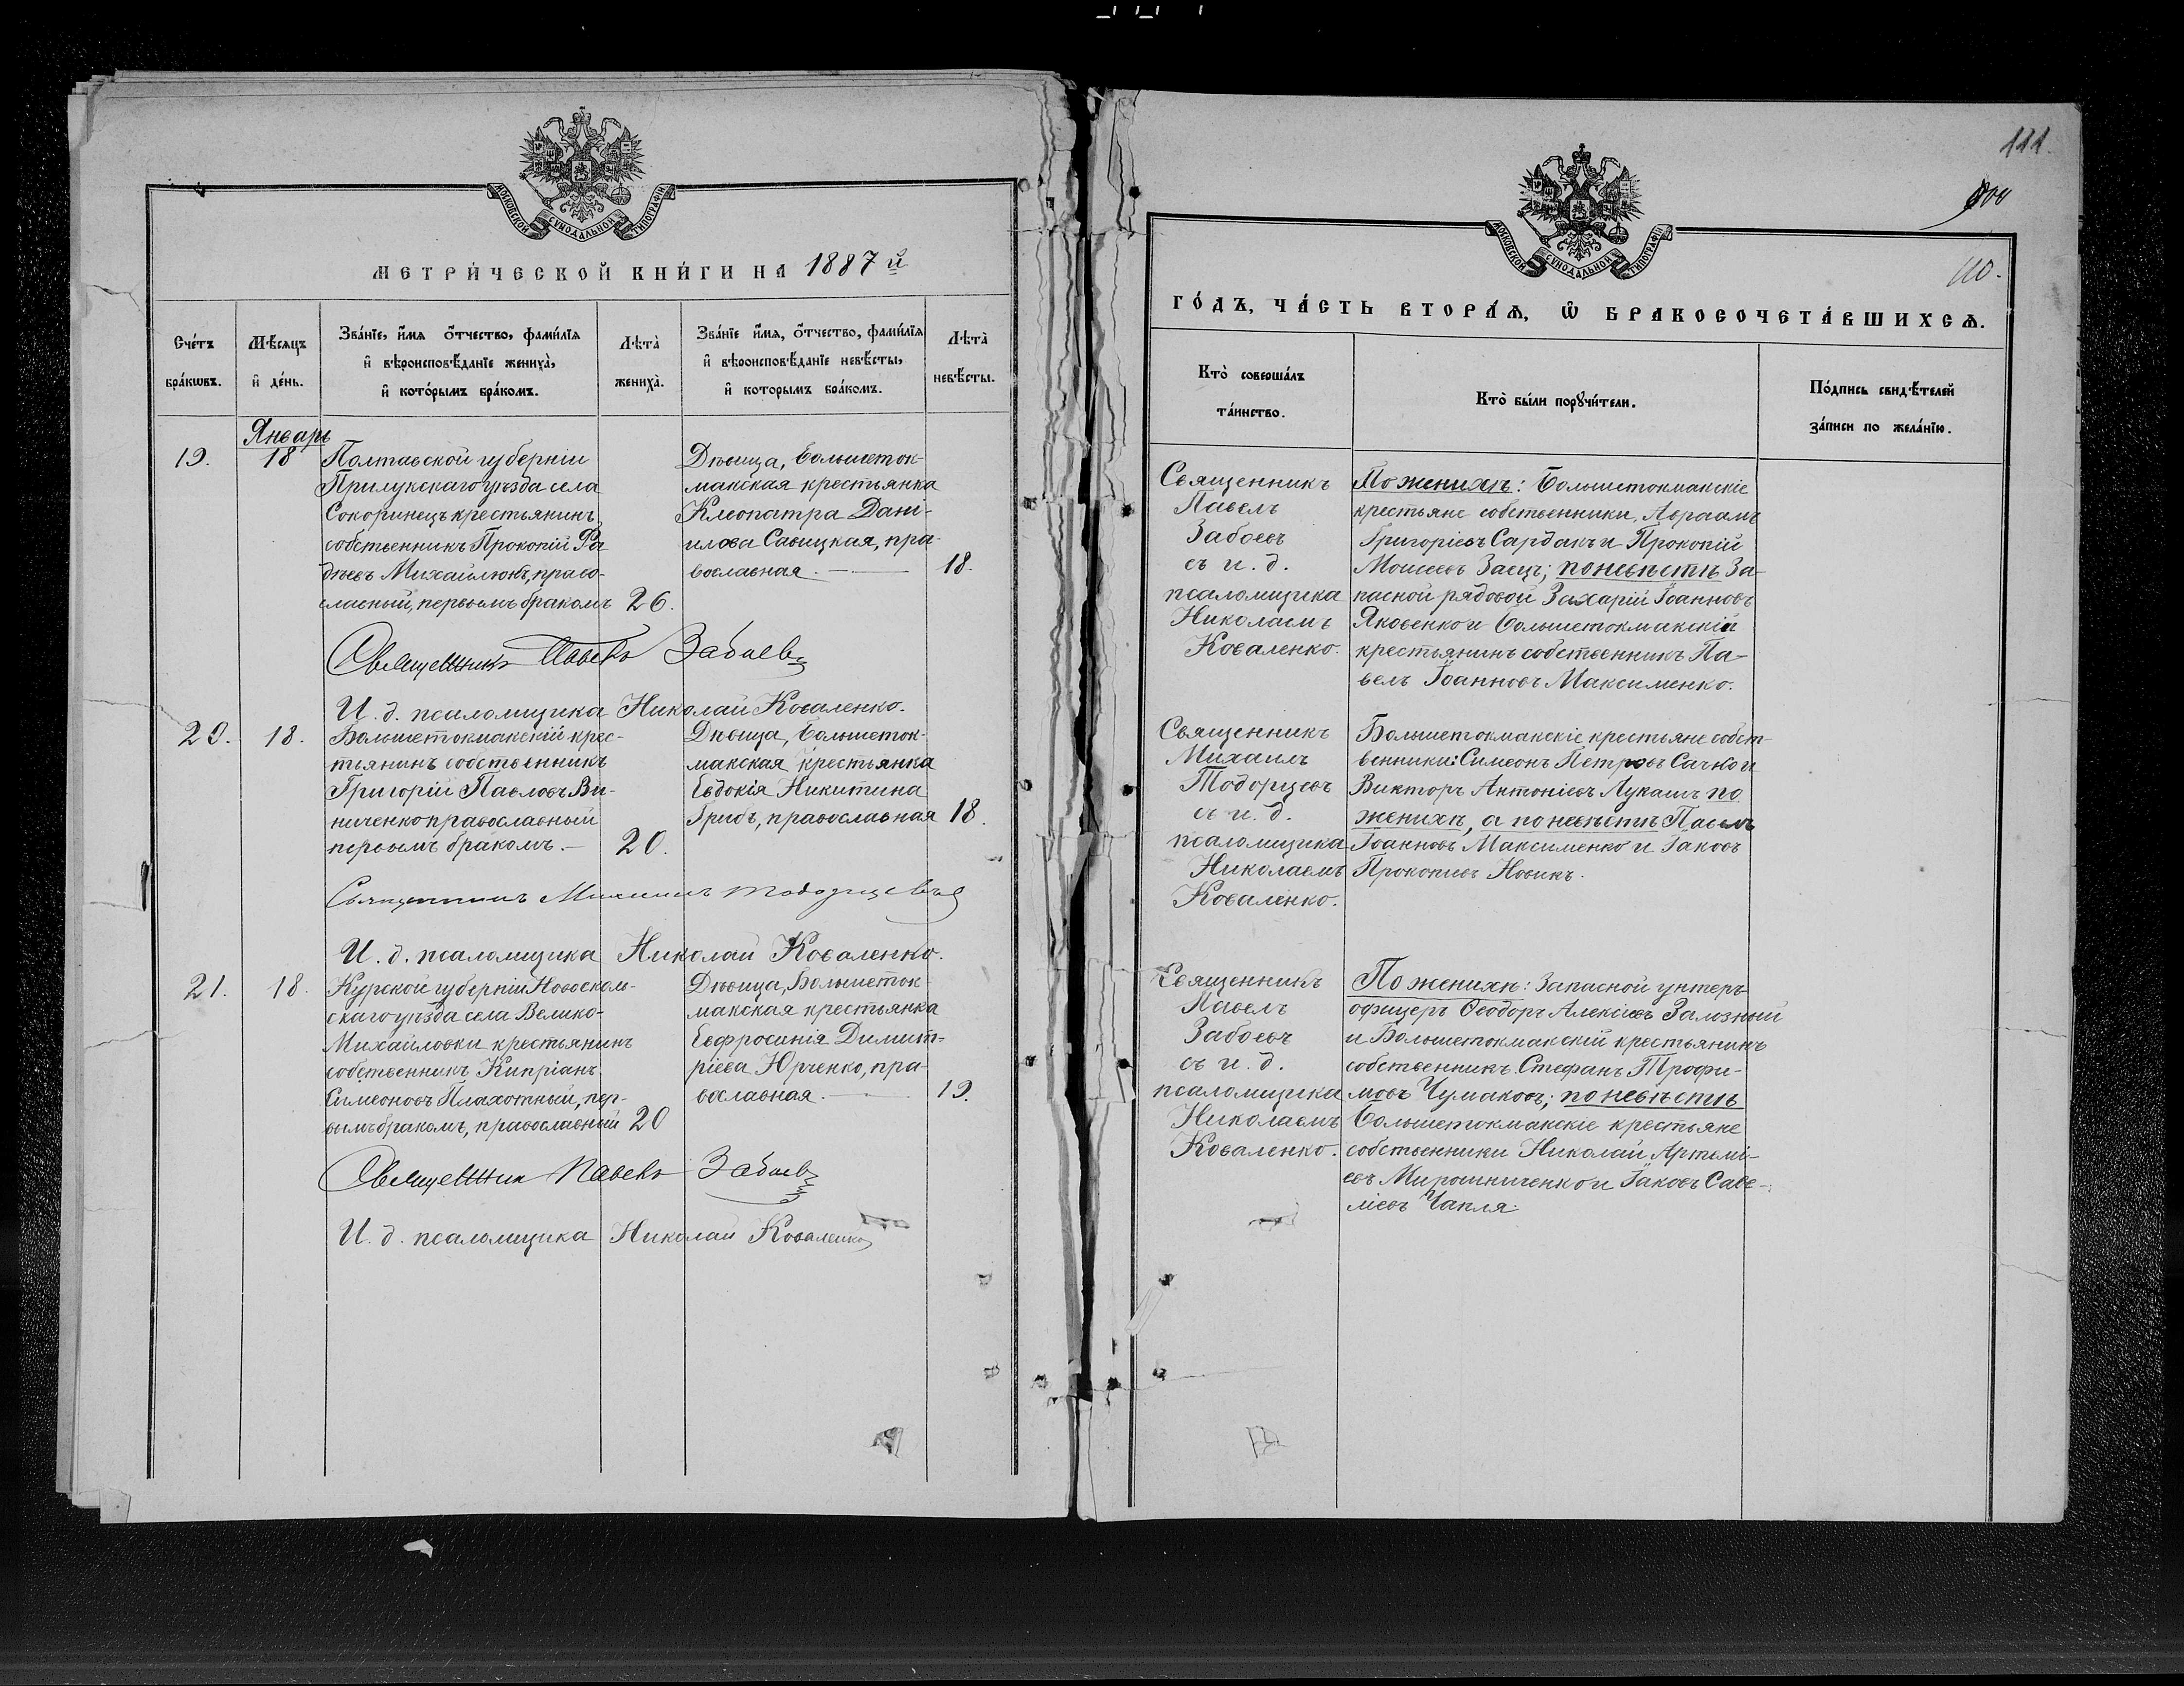 МОСКОВСКОЙ СѴНОДАЛЬНОЙ ТИПОГРАФІИ
МЕТРИ́ЧЕСКОЙ КНИ́ГИ НА 1887 й
Сче́тъ бра́кѡвъ.
Мѣ́сяцъ и҆ де́нь.
Зва́нїе, и҆́мя ѻ҆́тчество, фами́лїя
и҆ вѣроисповѣ́данїе жениха̀,
и҆ кото́рымъ бра́комъ.
Лѣта̀ жениха̀.
Зва́нїе и҆́мя, ѻ҆́тчество, фами́лїя
и҆ вѣроисповѣ́данїе невѣ́сты,
и҆ которымъ бра́комъ.
Лѣта̀ невѣ́сты.
Январь
19.
18
Полтавской губерніи
Прилукскаго уѣзда села
Сокоринецъ крестьянинъ
собственникъ Прокопій Фа
дѣевъ Михайлюкъ, право-
славный, первымъ бракомъ
26.
Дѣвица, Большеток-
макская крестьянка
Клеопатра Дани-
илова Савицкая, пра-
вославная.
18.
Священникъ Павелъ Забоевъ
И. д. псаломщика Николай Коваленко.
20.
18.
Большетокмакскій крес-
тьянинъ собственникъ
Григорій Павловъ Ви-
ниченко православный
первымъ бракомъ.
20.
Дѣвица, Большеток-
макская крестьянка
Евдокія Никитина
Грибъ, православная
18.
Священникъ Михаилъ Тодорцевъ
И. д. псаломщика Николай Коваленко.
21.
18.
Курской губерніи Новоском-
скаго уѣзда села Велико-
Михайловки крестьянинъ
собственникъ Кипріанъ
Симеоновъ Плахотный, пер-
вымъ бракомъ, православный
20
Дѣвица, Большеток-
макская крестьянка
Евфросинія Димит-
ріева Юрченко, пра-
вославная.
19.
Священник Павелъ Забоевъ
И. д. псаломщика Николай Коваленко
111.
110.
МОСКОВСКОЙ СѴНОДАЛЬНОЙ ТИПОГРАФІИ
ГО́ДЪ, ЧА́СТЬ ВТОРА́Ѧ, Ѡ҆ БРАКОСОЧЕТА́ВШИХСѦ.
Кто̀ соверша́лъ та́инство.
Кто̀ бы́ли порꙋчи́тели.
По́дпись свидѣ́телей за́писи по жела́нїю.
Священникъ
Павелъ
Забоевъ
съ и. д.
псаломщика
Николаемъ
Коваленко.
По женихѣ: Большетокмакскіе
крестьяне собственники, Авраамъ
Григоріевъ Сардакъ и Прокопій
Моисеевъ Заецъ; по невѣстѣ За-
пасной рядовой Захарій Іоанновъ
Яковенко и Большетокмакскій
крестьянинъ собственникъ Па-
велъ Іоанновъ Максименко.
Священникъ
Михаилъ
Тодорцевъ
съ и. д.
псаломщика
Николаемъ
Коваленко.
Большетокмакскіе крестьяне собст-
венники: Симеонъ Петровъ Сачко и
Викторъ Антоніевъ Лукашъ по
женихѣ, а по невѣстѣ Павелъ
Іоанновъ Максименко и Іаковъ
Прокопіевъ Новикъ.
Священникъ
Павелъ
Забоевъ
съ и. д.
псаломщика
Николаемъ
Коваленко.
По женихѣ: Запасной унтеръ-
офицеръ Ѳеодоръ Алексіевъ Залозный
и Большетокмакскій крестьянинъ
собственникъ Стефанъ Трофи-
мовъ Чумаковъ; по невѣстѣ
Большетокмакскіе крестьяне
собственники Николай Артемі-
евъ Мирошниченко и Іаковъ Саве-
ліевъ Чапля.